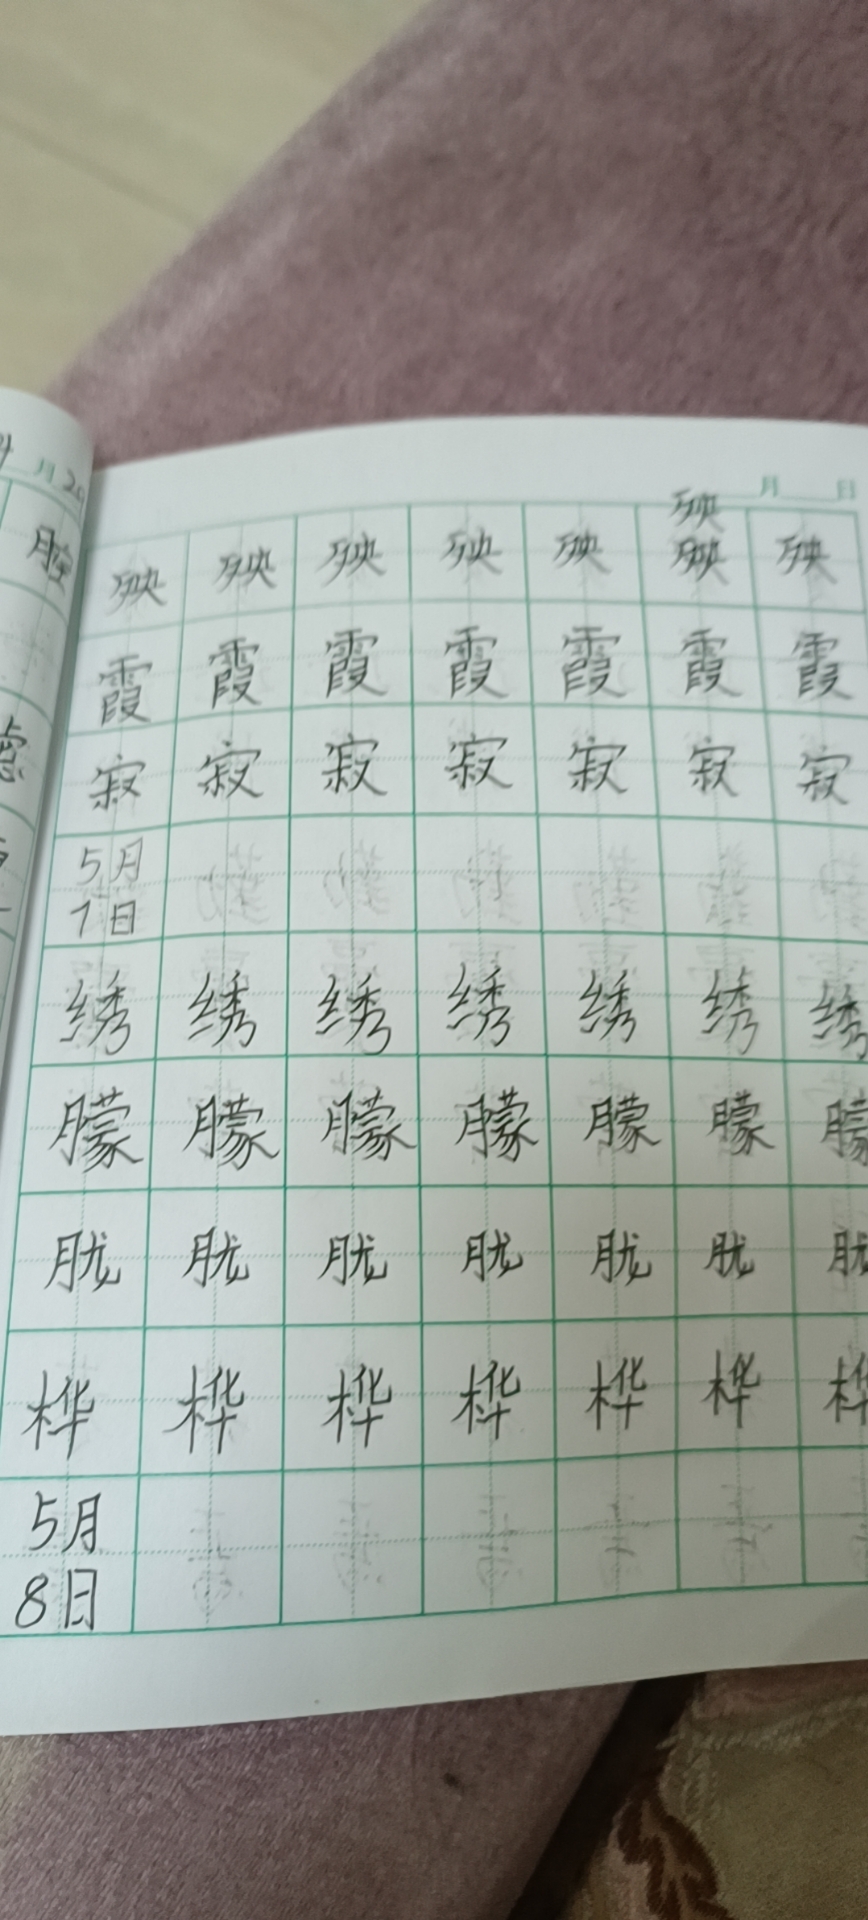 月20
月 日
殃
腔 殃 殃 殃 殃 殃 殃 殃
霞 霞 霞 霞 霞 霞 霞
寂 寂 寂 寂 寂 寂 寂
5月
7日
绣 绣 绣 绣 绣 绣 绣
朦 朦 朦 朦 朦 朦 朦
胧 胧 胧 胧 胧 胧 胧
桦 桦 桦 桦 桦 桦 桦
5月
8日